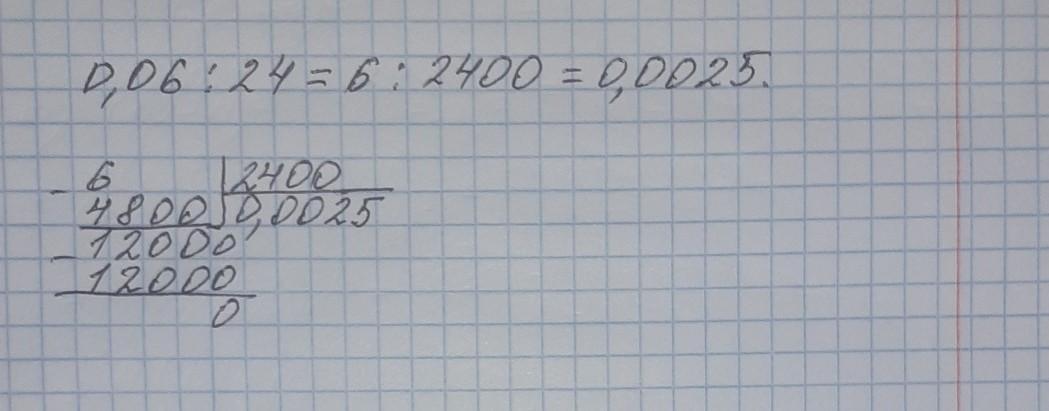 0,06 : 24 = 6 : 2400 = 0,0025.
- 6 | 2400
4800 | 0,0025
- 12000
12000
0